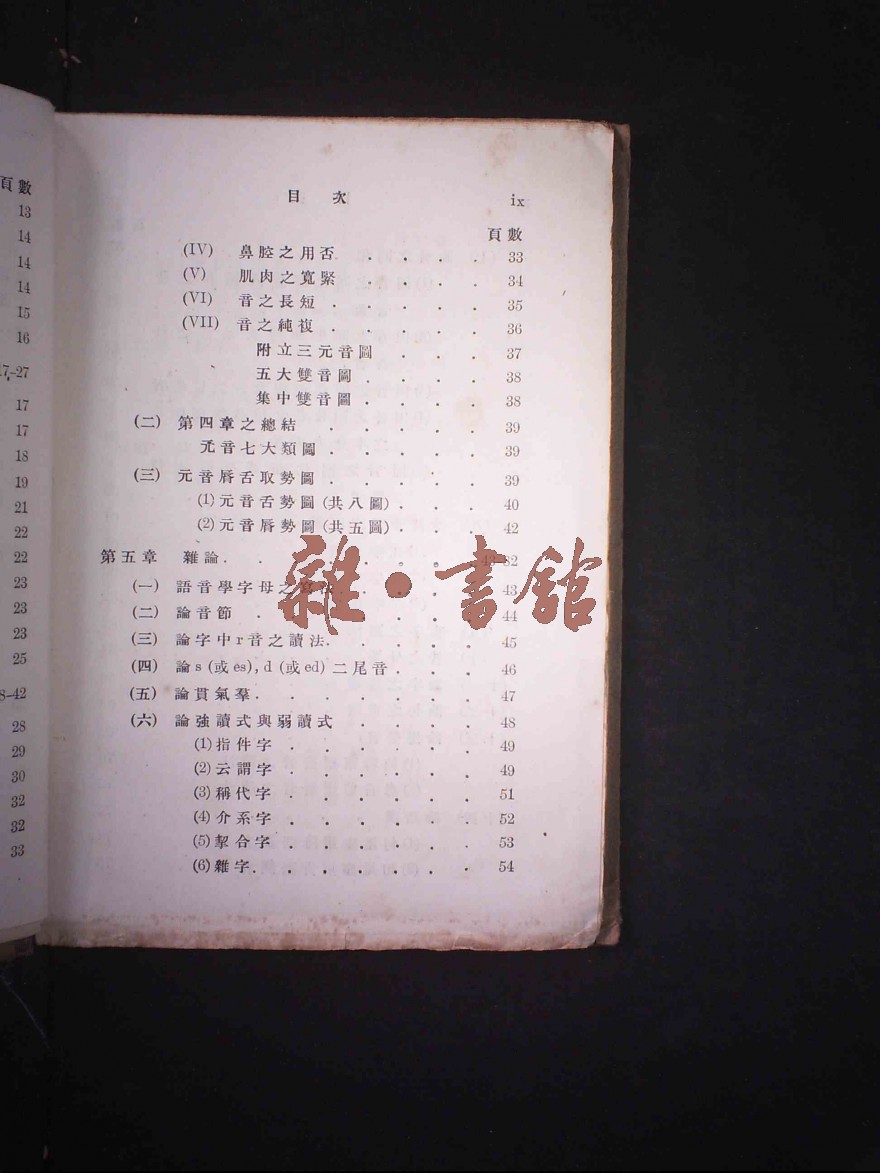 頁數
13
14
14
14
15
16
17-27
17
17
18
19
21
22
22
23
23
23
25
8-42
28
29
30
32
32
33
目次 ix
頁數
(IV) 鼻腔之用否 . . . . 33
(V) 肌肉之寬緊 . . . . 34
(VI) 音之長短 . . . . . 35
(VII) 音之純複 . . . . . 36
附立三元音圖 . . . 37
五大雙音圖 . . . . 38
集中雙音圖 . . . . 38
(二) 第四章之總結 . . . . . 39
元音七大類圖 . . . . . 39
(三) 元音唇舌取勢圖 . . . . 39
(1) 元音舌勢圖 (共八圖) . . . 40
(2) 元音唇勢圖 (共五圖) . . . 42
第五章 雜論 . . . . . . . 82
(一) 語音學字母之 . . . 43
(二) 論音節 . . . . . . 44
(三) 論字中 r 音之讀法 . . . . . 45
(四) 論 s (或 es), d (或 ed) 二尾音 . . . 46
(五) 論貫氣羣 . . . . . . . 47
(六) 論強讀式與弱讀式 . . . . 48
(1) 指件字 . . . . . . 49
(2) 云謂字 . . . . . . 49
(3) 稱代字 . . . . . . 51
(4) 介系字 . . . . . . 52
(5) 挈合字 . . . . . . 53
(6) 雜字 . . . . . . . 54
雜·書館